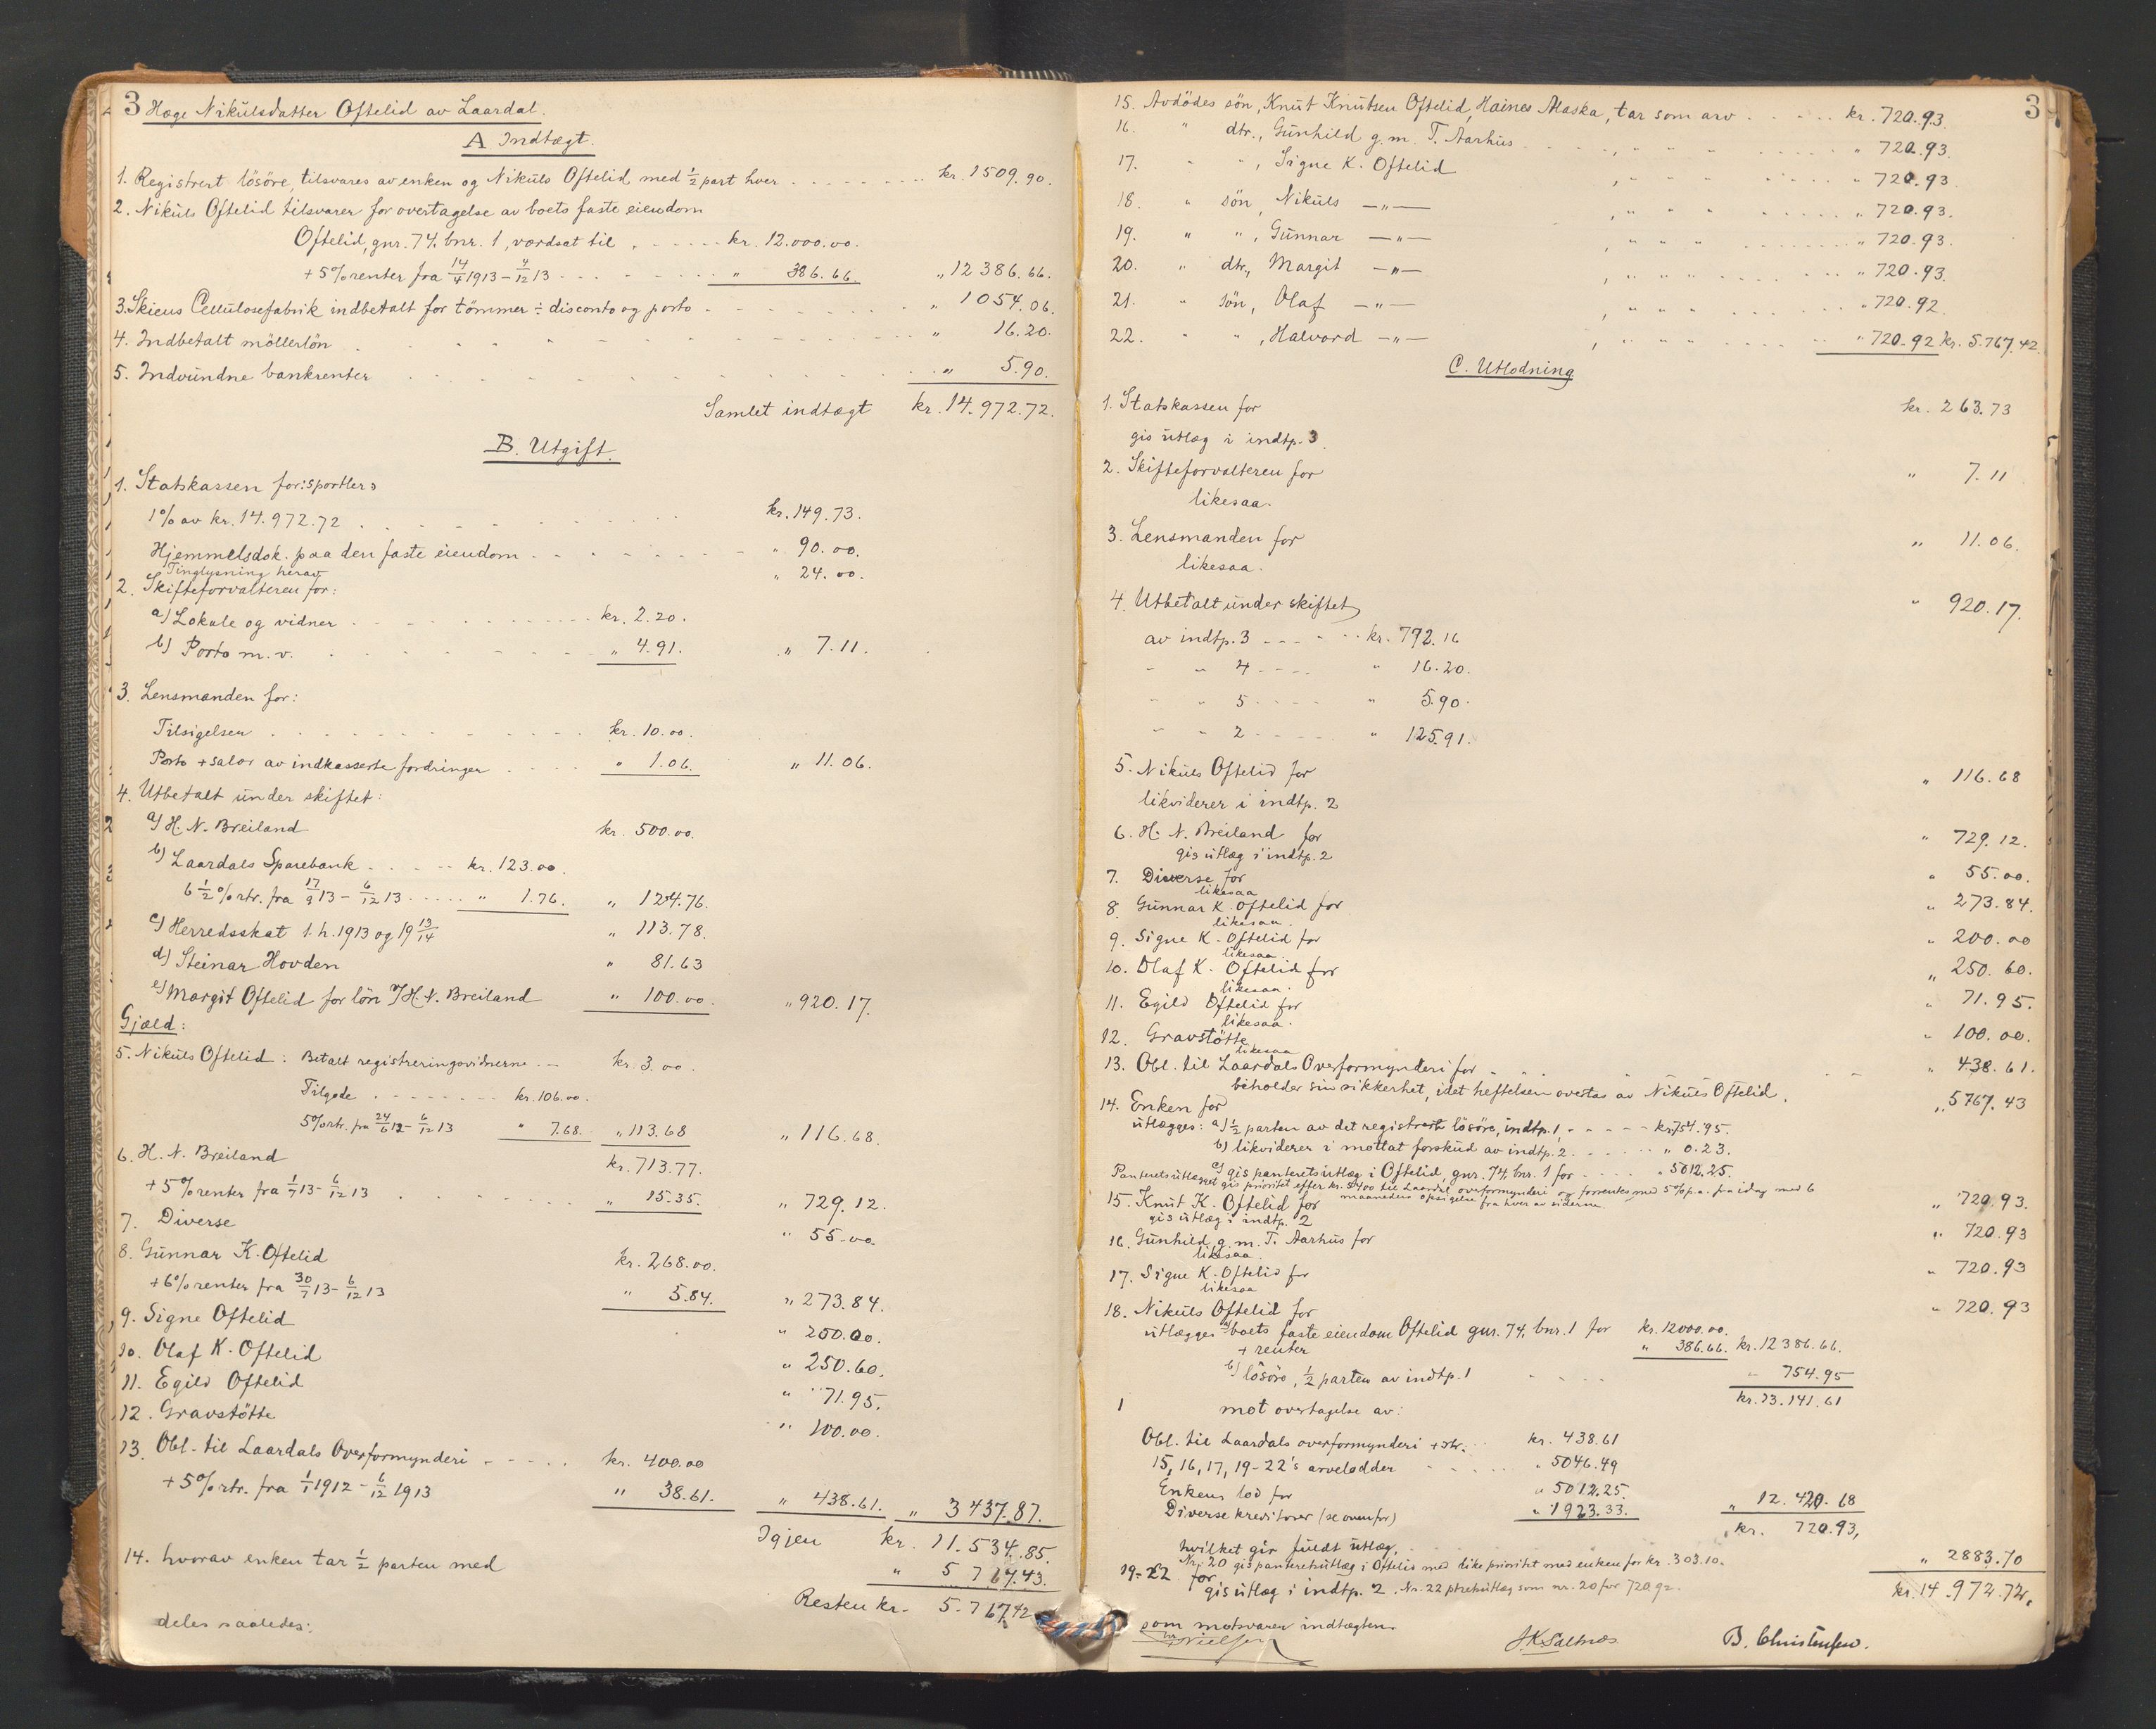 3 Hæge Nikulsdatter Oftelid av Laardal.
A Indtægt.
1. Registrert lösöre, tilsvares av enken og Nikuls Oftelid med 1/2 part hver kr. 1509.90.
2. Nikuls Oftelid tilsvarer for overtagelse av boets faste eiendom
Oftelid, gnr. 74. bnr. 1, værdsat til kr. 12.000.00.
+ 5% renter fra 14/4 1913 - 7/12 13 " 386.66. " 12386.66.
3. Skiens Cellulosefabrik indbetalt for tömmer ÷ disconto og porto " 1054.06.
4. Indbetalt möllerlön " 16.20.
5. Indvundne bankrenter " 5.90.
Samlet indtægt kr. 14.972.72.
B. Utgift.
1. Statskassen for: sportler:
1% av kr. 14.972.72 kr. 149.73.
Hjemmelsdok. paa den faste eiendom " 90.00.
Tinglysning herav " 24.00.
2. Skifteforvalteren for:
a) Lokale og vidner kr. 2.20.
b) Porto m.v. " 4.91. " 7.11.
3. Lensmanden for:
Tilsigelsen kr. 10.00.
Porto + salær av indkasserte fordringer " 1.06. " 11.06.
4. Utbetalt under skiftet:
a) H. N. Breiland kr. 500.00.
b) Laardals Sparebank kr. 123.00.
6 1/2 % rtr. fra 17/9 13 - 6/12 13 " 1.76. " 124.76.
c) Herredsskat 1. h. 1913 og 19 13/14 " 113.78.
d) Steinar Hovden " 81.63
e) Margit Oftelid for lön v/ H. N. Breiland " 100.00. " 920.17.
Gjæld:
5. Nikuls Oftelid: Betalt registreringsvidnerne kr. 3.00.
Tilgode kr. 106.00.
5% rtr. fra 24/6 12 - 6/12 13 " 7.68. " 113.68 " 116.68.
6. H. N. Breiland kr. 713.77.
+ 5% renter fra 1/7 13 - 6/12 13 " 15.35. " 729.12.
7. Diverse " 55.00
8. Gunnar K. Oftelid kr. 268.00.
+ 6% renter fra 30/7 13 - 6/12 13 " 5.84. " 273.84.
9. Signe Oftelid " 200.00.
10. Olaf K. Oftelid " 250.60.
11. Egild Oftelid " 71.95.
12. Gravstötte " 100.00.
13. Obl. til Laardals Overformynderi kr. 400.00
+ 5% rtr. fra 1/1 1912 - 6/12 1913 " 38.61. " 438.61. " 3437.87.
Igjen kr. 11.534.85.
14. hvorav enken tar 1/2 parten med " 5767.43.
Resten kr. 5.767.42
deles saaledes:
3
15. Avdödes sön, Knut Knutsen Oftelid, Haines Alaska, tar som arv kr. 720.93.
16. " dtr., Gunhild g.m. T. Aarhus " 720.93.
17. " " , Signe K. Oftelid " 720.93.
18. " sön, Nikuls —"— " 720.93.
19. " " , Gunnar —"— " 720.93.
20. " dtr., Margit —"— " 720.93.
21. " sön, Olaf —"— " 720.92.
22. " " , Halvord —"— " 720.92 kr. 5.767.42.
C. Utlodning
1. Statskassen for kr. 263.73
gis utlæg i indtp. 3.
2. Skifteforvalteren for " 7.11
likesaa.
3. Lensmanden for " 11.06.
likesaa.
4. Utbetalt under skiftet " 920.17.
av indtp. 3 kr. 792.16
" " 4 " 16.20.
" " 5 " 5.90.
" " 2 " 125.91.
5. Nikuls Oftelid for " 116.68
likviderer i indtp. 2
6. H. N. Breiland for " 729.12.
gis utlæg i indtp. 2
7. Diverse for " 55.00.
likesaa
8. Gunnar K. Oftelid for " 273.84.
likesaa.
9. Signe K. Oftelid for " 200.00
likesaa
10. Olaf K. Oftelid for " 250.60.
likesaa.
11. Egild Oftelid for " 71.95.
likesaa.
12. Gravstötte " 100.00.
likesaa
13. Obl. til Laardals Overformynderi for " 438.61.
beholder sin sikkerhet, idet heftelsen overtas av Nikuls Oftelid.
14. Enken for " 5767.43
utlægges: a) 1/2 parten av det registrerte lösöre, indtp. 1, kr. 754.95.
b) likviderer i mottat forskud av indtp. 2 " 0.23.
c) gis panteretsutlæg i Oftelid, gnr. 74, bnr. 1 for " 5012.25.
Panteretsutlægget gis prioritet efter kr. 5400 til Laardal overformynderi og forrentes med 5% p.a. fra idag med 6
maaneders opsigelse fra hver av siderne.
15. Knut K. Oftelid for " 720.93.
gis utlæg i indtp. 2
16. Gunhild g.m. T. Aarhus for " 720.93
likesaa.
17. Signe K. Oftelid for " 720.93
likesaa
18. Nikuls Oftelid for " 720.93
utlægges a) boets faste eiendom Oftelid gnr. 74, bnr. 1 for kr. 12000.00.
+ renter " 386.66. kr. 12386.66.
b) lösöre, 1/2 parten av indtp. 1 " 754.95
kr. 13.141.61
mot overtagelse av:
Obl. til Laardals overformynderi + rtr. kr. 438.61
15, 16, 17, 19-22's arvelodder " 5046.49
Enkens lod for " 5012.25.
Diverse kreditorer (se ovenfor) " 1923.33. " 12.420.68
kr. 720.93,
hvilket gir fuldt utlæg.
19-22 for " 2883.70
Nr. 20 gis panteretsutlæg i Oftelid med like prioritet med enken for kr. 303.10.
gis utlæg i indtp. 2. Nr. 22 ptretsutlæg som nr. 20 for 720.92.
kr. 14.972.72.
som motsvarer indtægten.
Nielsen J K Saltnes B. Christensen.